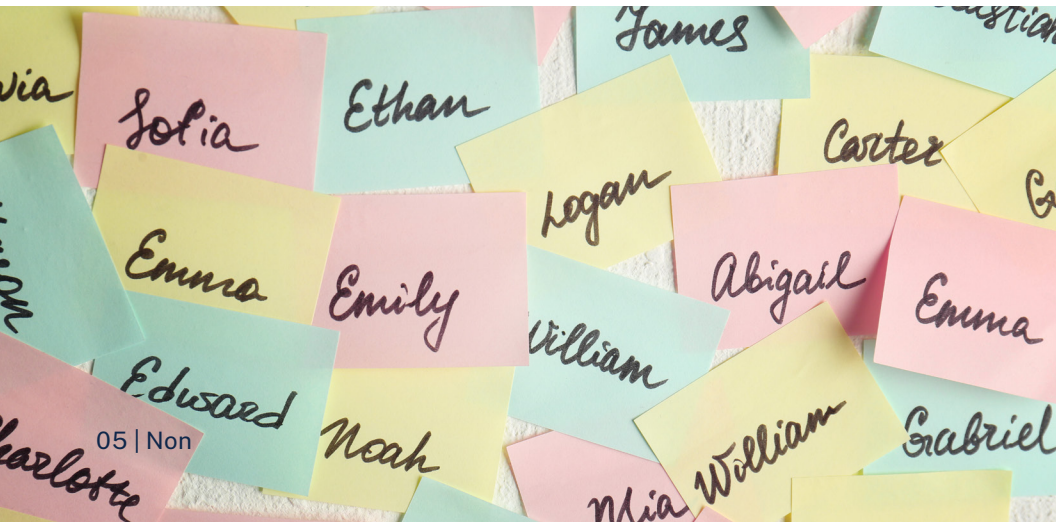 James
Ethan
Sofia
Carter
Logan
Emma
Emily
Abigail
Emma
William
Edward
Noah
William
Gabriel
Charlotte
05 | Non
Mia